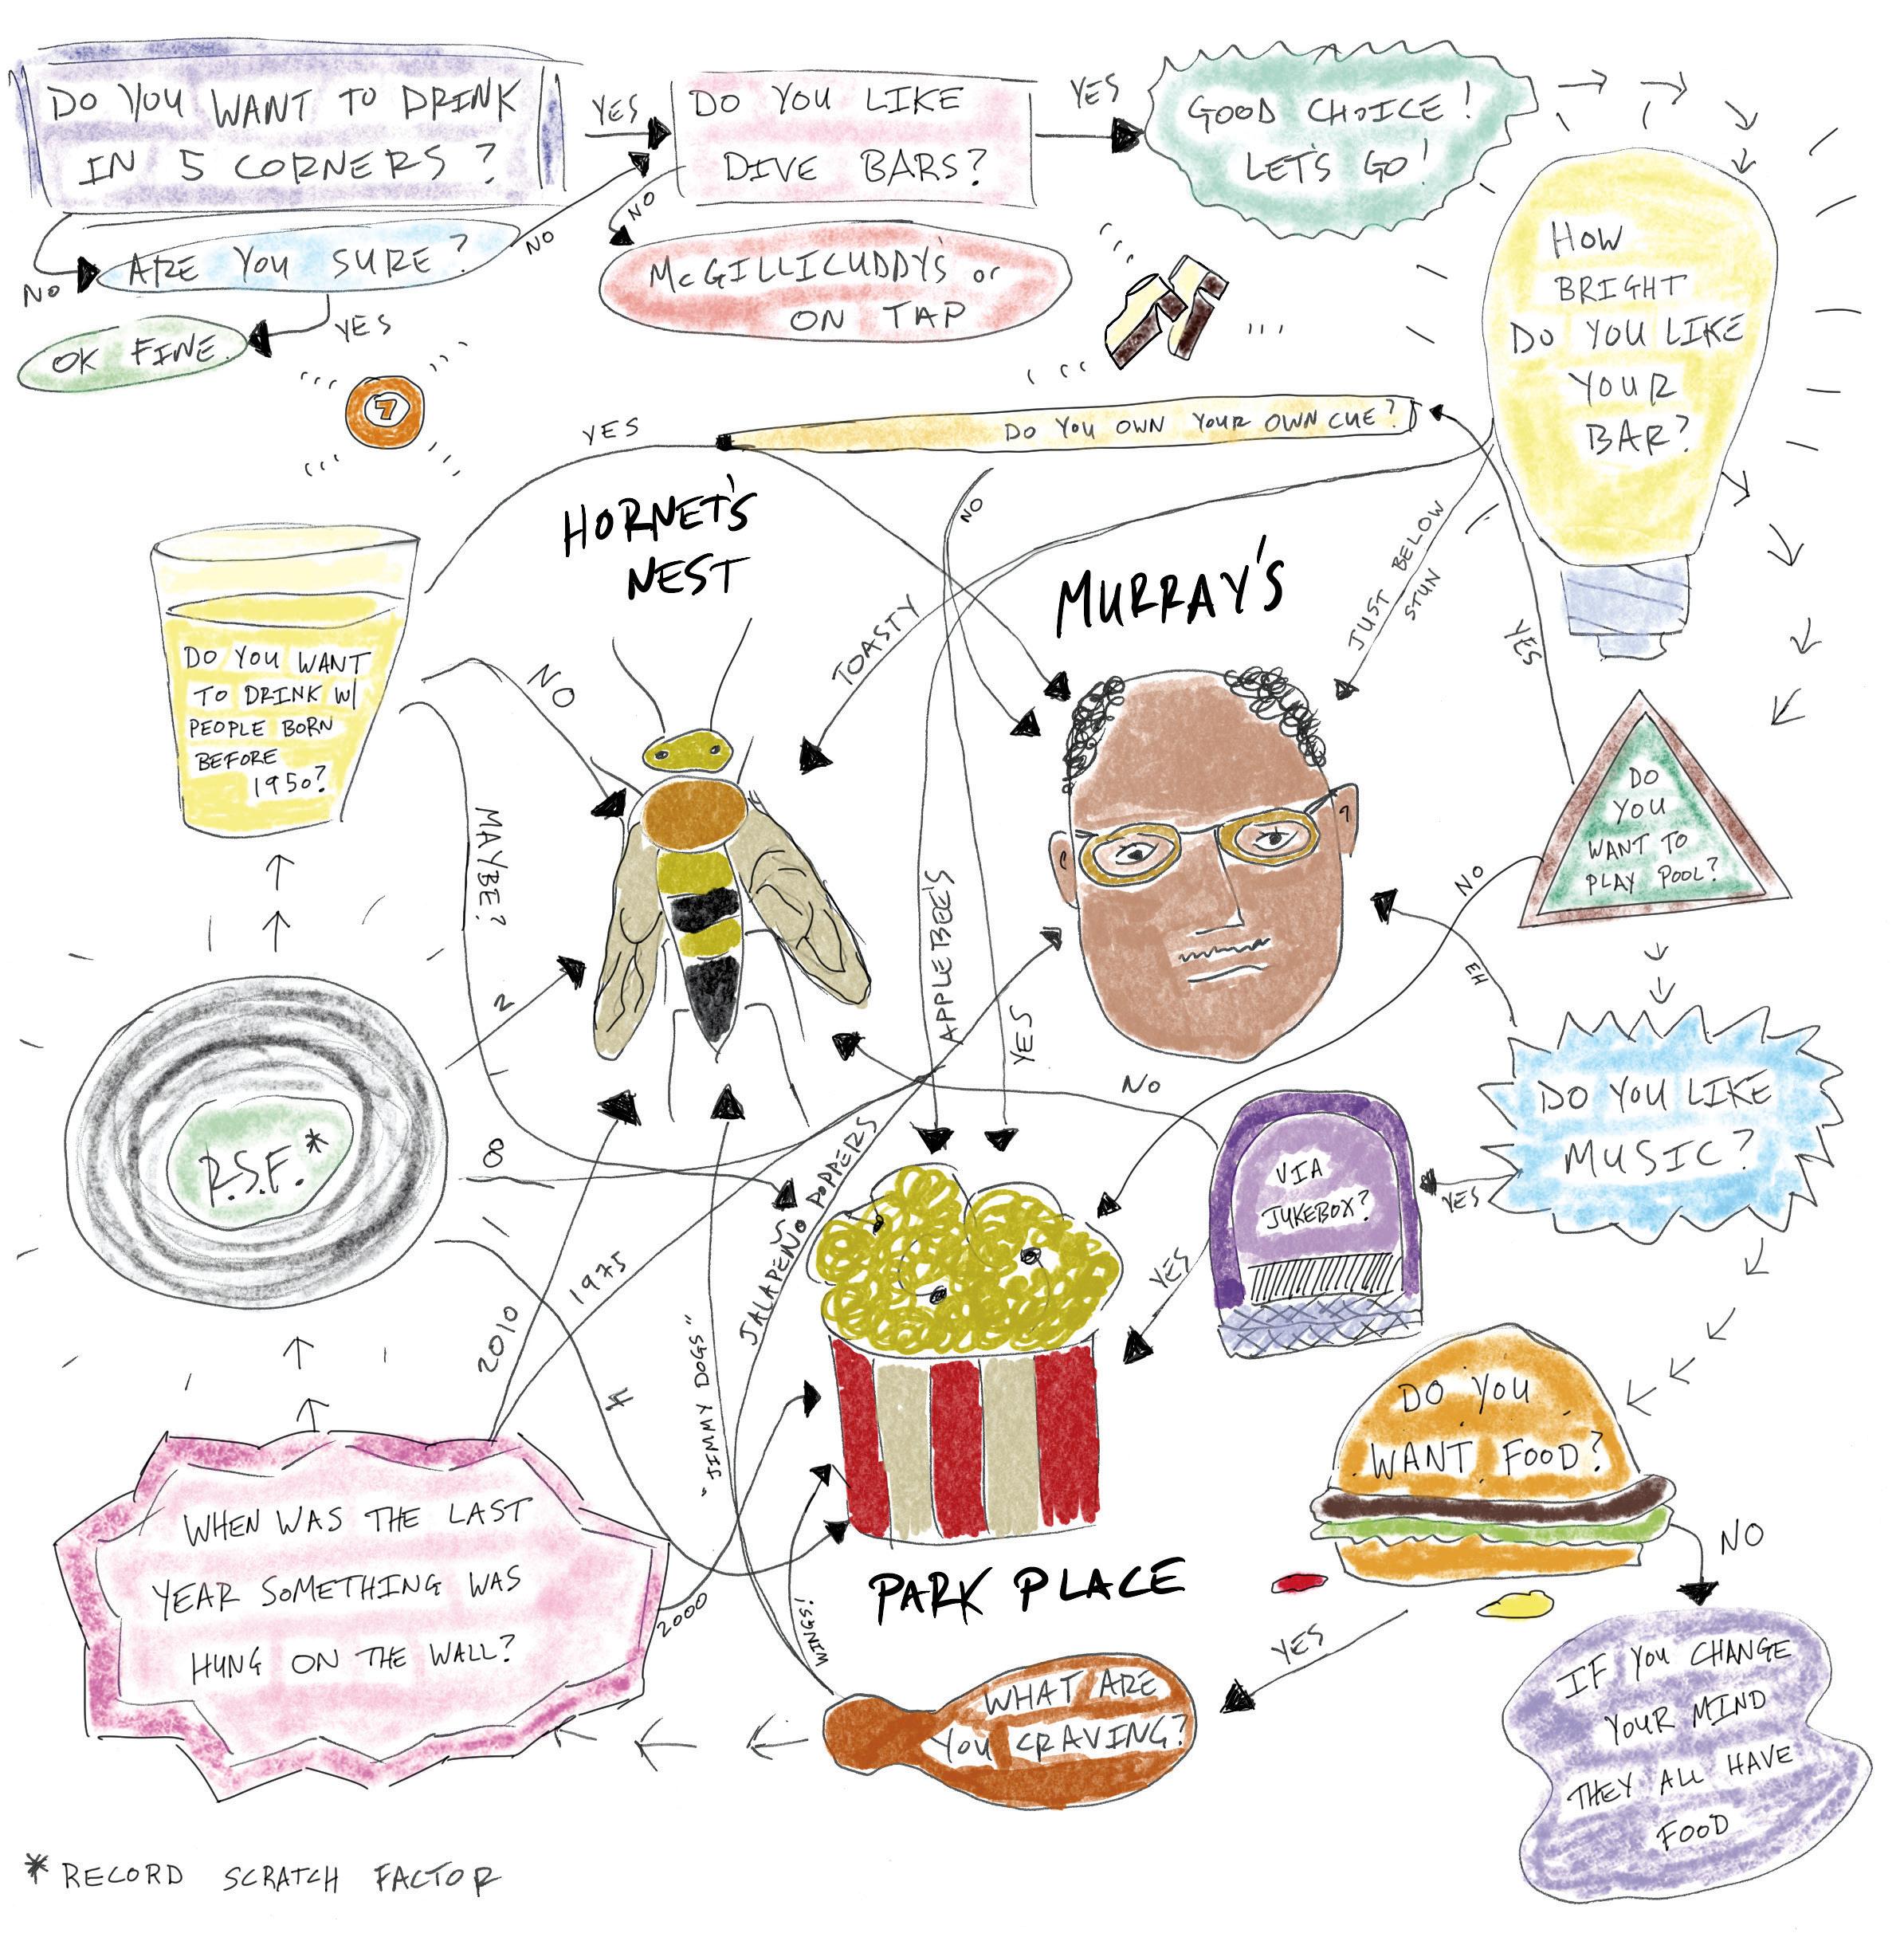 DO YOU WANT TO DRINK
IN 5 CORNERS?
YES
DO YOU LIKE
DIVE BARS?
YES
GOOD CHOICE!
LET'S GO!
NO
ARE YOU SURE?
NO
NO
YES
OK FINE.
McGILLICUDDY'S or
ON TAP
HOW
BRIGHT
DO YOU LIKE
YOUR
BAR?
7
YES
DO YOU OWN YOUR OWN CUE?
NO
JUST BELOW
STUN
TOASTY
APPLEBEE'S
YES
HORNET'S
NEST
MURRAY'S
DO YOU WANT
TO DRINK W/
PEOPLE BORN
BEFORE
1950?
YES
NO
MAYBE?
DO
YOU
WANT TO
PLAY POOL?
NO
EH
DO YOU LIKE
MUSIC?
YES
VIA
JUKEBOX?
NO
YES
R.S.F.*
2
1
8
4
DO YOU
WANT FOOD?
NO
YES
IF YOU CHANGE
YOUR MIND
THEY ALL HAVE
FOOD
WHAT ARE
YOU CRAVING?
WINGS!
"JIMMY DOGS"
JALAPEÑO POPPERS
PARK PLACE
WHEN WAS THE LAST
YEAR SOMETHING WAS
HUNG ON THE WALL?
2010
1975
2000
*RECORD SCRATCH FACTOR